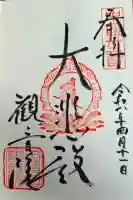 奉拝
令和 年四月十一日
大悲殿
觀音院